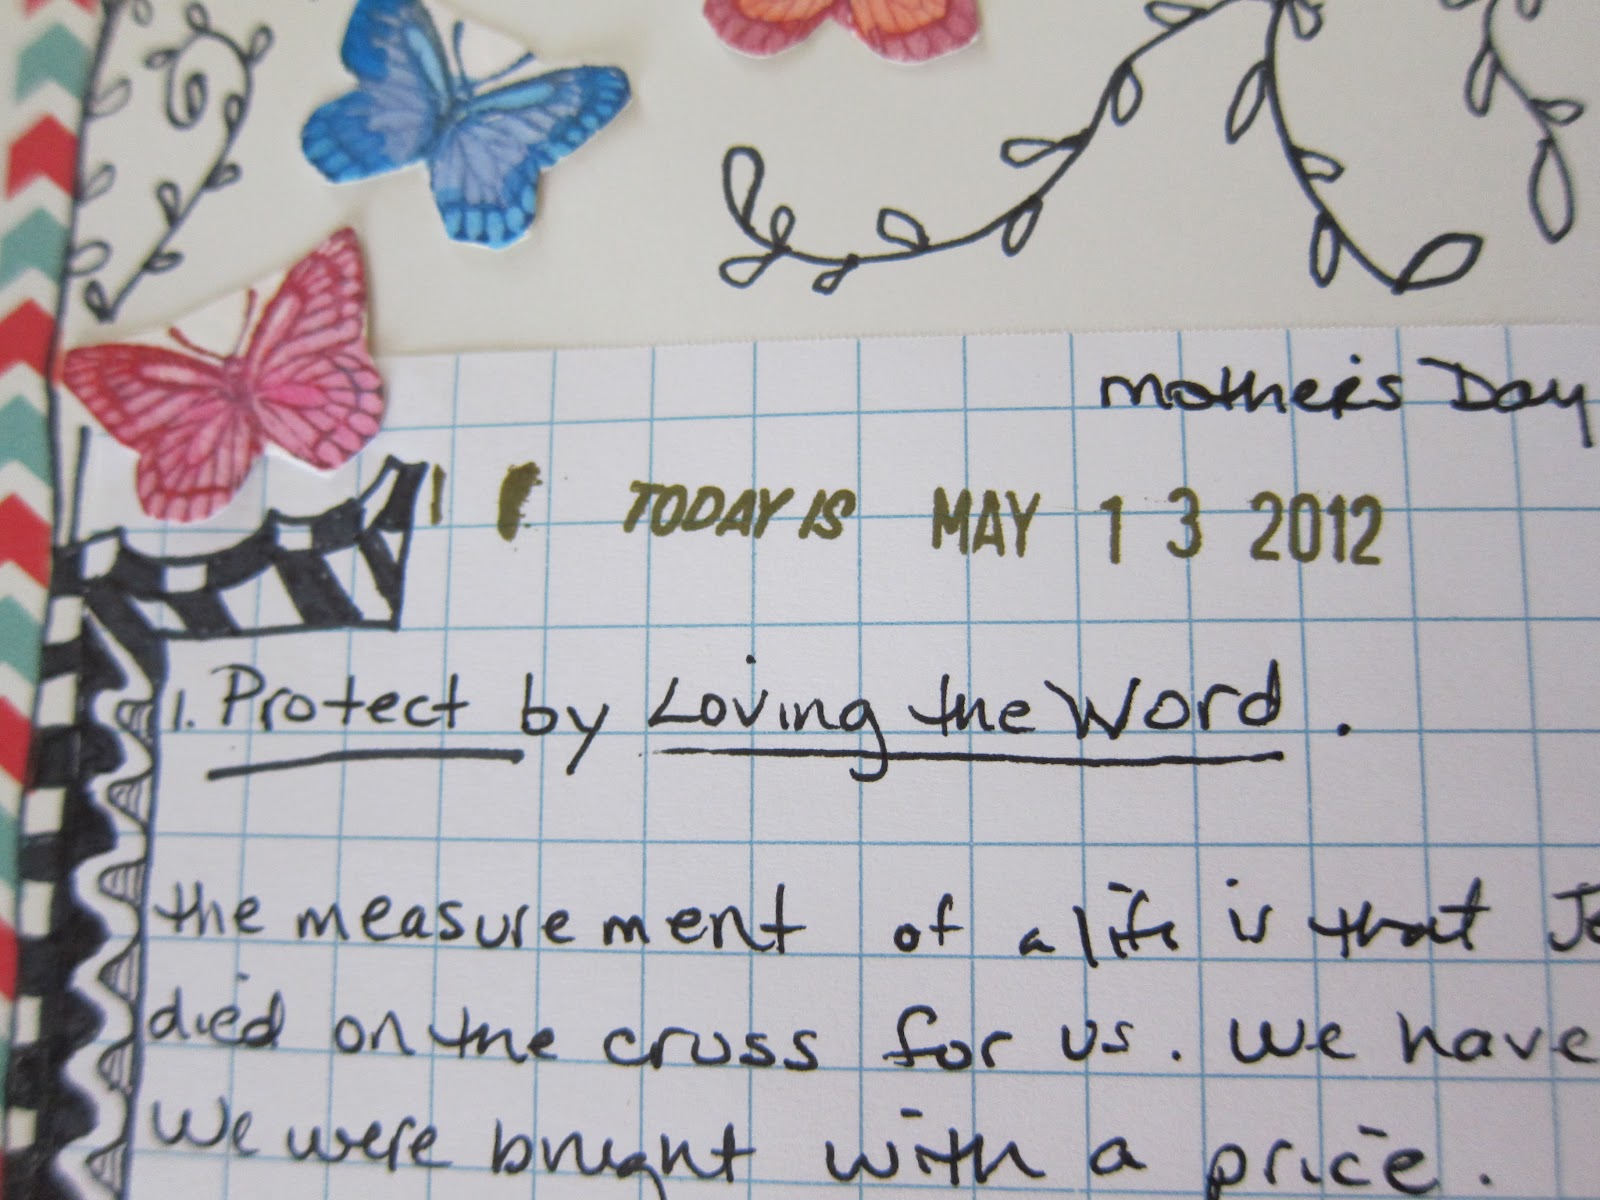 mother's Day
TODAY IS MAY 13 2012
1. Protect by Loving the Word.
the measurement of a life is that
died on the cross for us. We have
We were bought with a price.